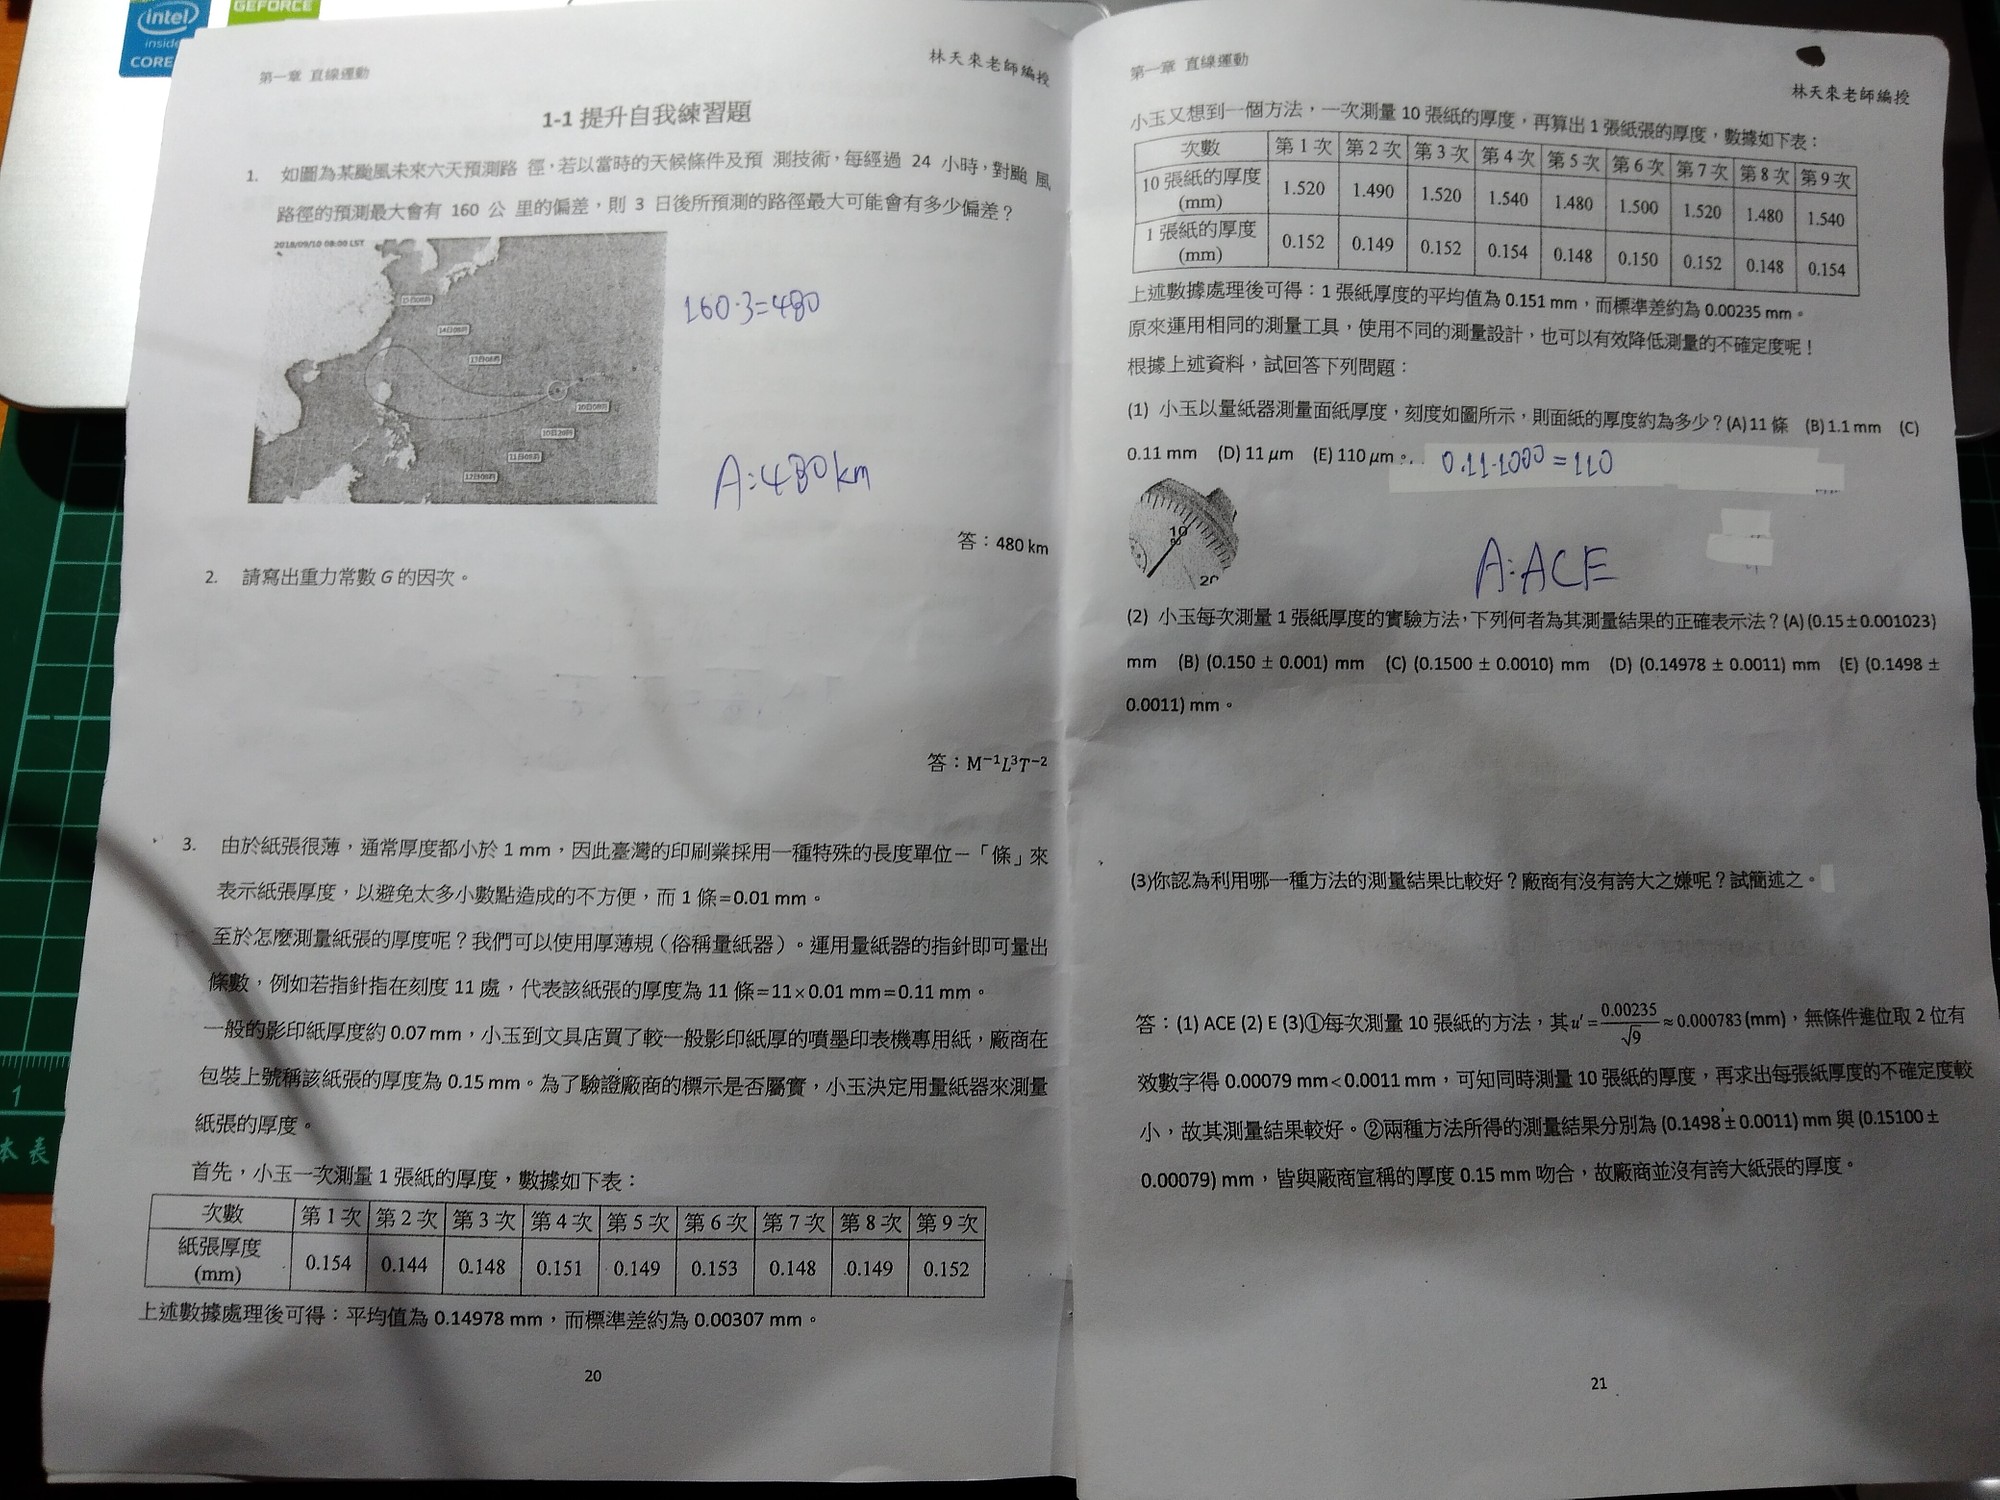 intel
inside
CORE
GEFORCE
第一章 直線運動
林天來老師編授
1-1 提升自我練習題
1. 如圖為某颱風未來六天預測路 徑,若以當時的天候條件及預 測技術,每經過 24 小時,對颱 風
路徑的預測最大會有 160 公 里的偏差,則 3 日後所預測的路徑最大可能會有多少偏差?
2018/09/10 08:00 LST
15日08時
14日08時
13日08時
10日08時
10日20時
11日08時
12日08時
160·3=480
A:480km
答:480 km
2. 請寫出重力常數 G 的因次。
答:M⁻¹L³T⁻²
3. 由於紙張很薄,通常厚度都小於 1 mm,因此臺灣的印刷業採用一種特殊的長度單位-「條」來
表示紙張厚度,以避免太多小數點造成的不方便,而 1 條=0.01 mm。
至於怎麼測量紙張的厚度呢?我們可以使用厚薄規(俗稱量紙器)。運用量紙器的指針即可量出
條數,例如若指針指在刻度 11 處,代表該紙張的厚度為 11 條=11×0.01 mm=0.11 mm。
一般的影印紙厚度約 0.07 mm,小玉到文具店買了較一般影印紙厚的噴墨印表機專用紙,廠商在
包裝上號稱該紙張的厚度為 0.15 mm。為了驗證廠商的標示是否屬實,小玉決定用量紙器來測量
紙張的厚度。
首先,小玉一次測量 1 張紙的厚度,數據如下表:
次數 第 1 次 第 2 次 第 3 次 第 4 次 第 5 次 第 6 次 第 7 次 第 8 次 第 9 次
紙張厚度
(mm) 0.154 0.144 0.148 0.151 0.149 0.153 0.148 0.149 0.152
上述數據處理後可得:平均值為 0.14978 mm,而標準差約為 0.00307 mm。
20
1
本表
第一章 直線運動
林天來老師編授
小玉又想到一個方法,一次測量 10 張紙的厚度,再算出 1 張紙張的厚度,數據如下表:
次數 第 1 次 第 2 次 第 3 次 第 4 次 第 5 次 第 6 次 第 7 次 第 8 次 第 9 次
10 張紙的厚度
(mm) 1.520 1.490 1.520 1.540 1.480 1.500 1.520 1.480 1.540
1 張紙的厚度
(mm) 0.152 0.149 0.152 0.154 0.148 0.150 0.152 0.148 0.154
上述數據處理後可得:1 張紙厚度的平均值為 0.151 mm,而標準差約為 0.00235 mm。
原來運用相同的測量工具,使用不同的測量設計,也可以有效降低測量的不確定度呢!
根據上述資料,試回答下列問題:
(1) 小玉以量紙器測量面紙厚度,刻度如圖所示,則面紙的厚度約為多少?(A) 11 條 (B) 1.1 mm (C)
0.11 mm (D) 11 μm (E) 110 μm。
0.11·1000=110
10
20
A:ACE
(2) 小玉每次測量 1 張紙厚度的實驗方法,下列何者為其測量結果的正確表示法?(A) (0.15±0.001023)
mm (B) (0.150 ± 0.001) mm (C) (0.1500 ± 0.0010) mm (D) (0.14978 ± 0.0011) mm (E) (0.1498 ±
0.0011) mm。
(3)你認為利用哪一種方法的測量結果比較好?廠商有沒有誇大之嫌呢?試簡述之。
答:(1) ACE (2) E (3)①每次測量 10 張紙的方法,其 u' = 0.00235/√9 ≈ 0.000783 (mm),無條件進位取 2 位有
效數字得 0.00079 mm<0.0011 mm,可知同時測量 10 張紙的厚度,再求出每張紙厚度的不確定度較
小,故其測量結果較好。②兩種方法所得的測量結果分別為 (0.1498±0.0011) mm 與 (0.15100 ±
0.00079) mm,皆與廠商宣稱的厚度 0.15 mm 吻合,故廠商並沒有誇大紙張的厚度。
21